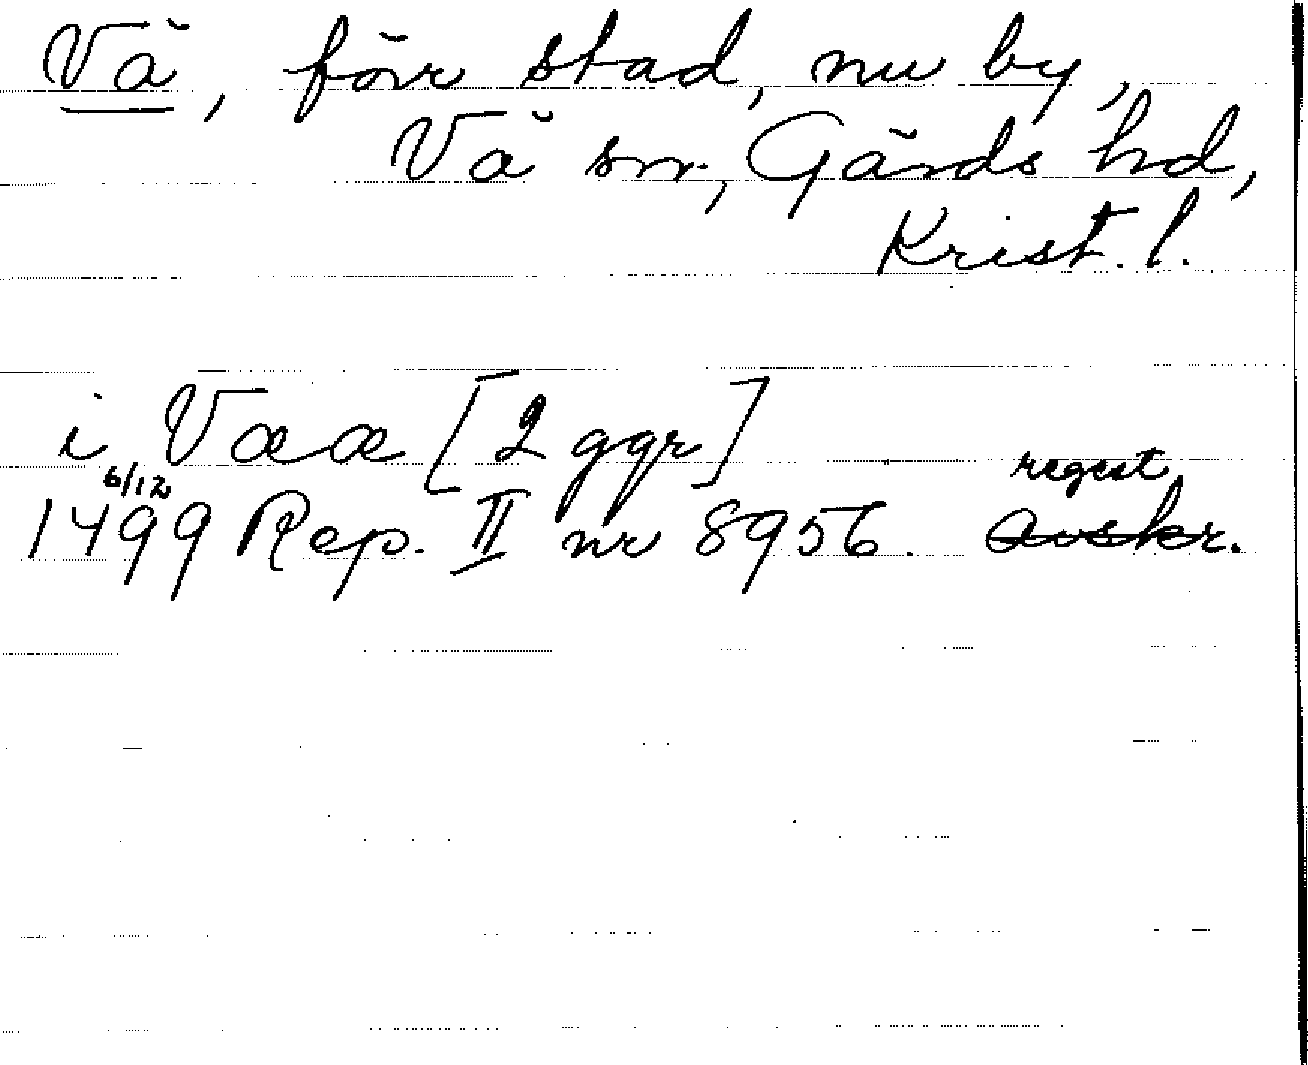 Vä, förr stad, nu by,
Vä sn., Gärds hd,
Krist. l.
i Vææ [2 ggr]
6/12 regest
1499 Rep. II nr 8956. avskr.